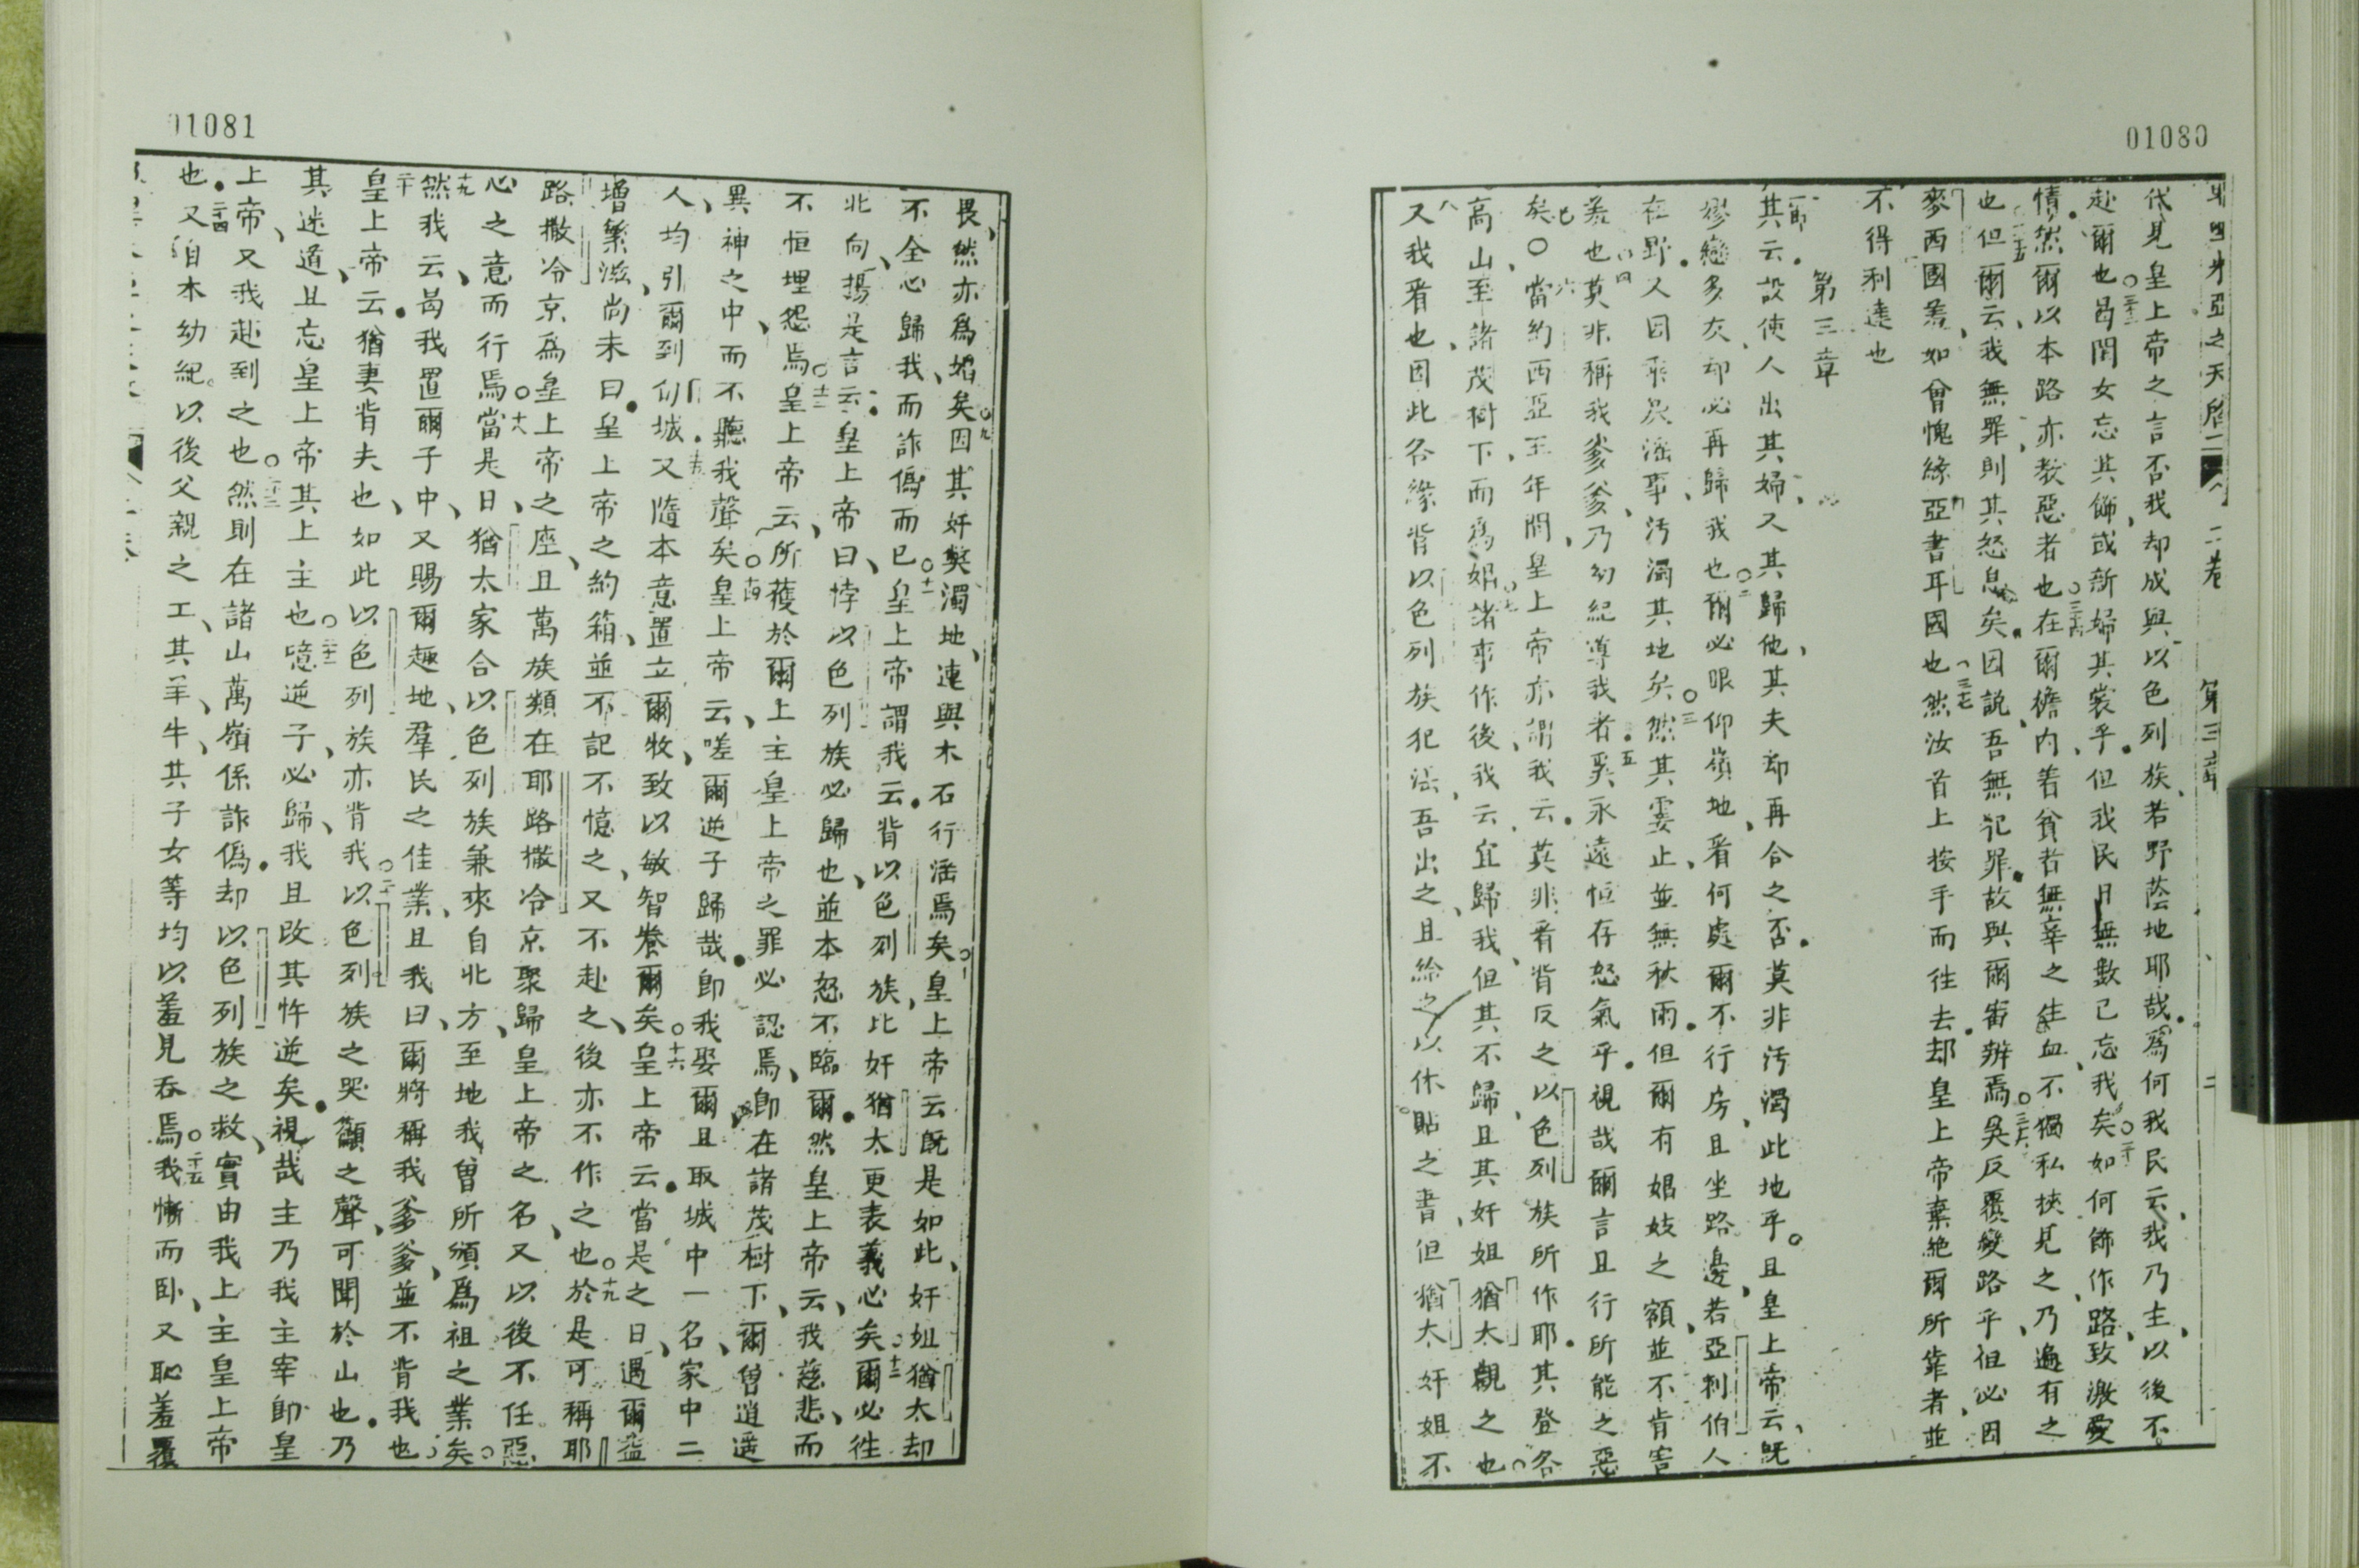 01080
耶利米亞之天啓 二卷 第三章 二
代見皇上帝之言否我却成與以色列族若野蔭地耶哉爲何我民云我乃主以後不
赴爾也三十二曷閨女忘其飾或新婦其裳乎但我民月無數已忘我矣三十三如何飾作路致激愛
情然爾以本路亦教惡者也三十四在爾襜内着貧者無辜之生血不獨私挾見之乃遍有之
三十五也但爾云我無罪則其怒息矣因說吾無犯罪故與爾審辨焉三十六奚反覆變路乎但必因
麥西國羞如曾愧緣亞書耳國也三十七然汝首上按手而往去却皇上帝棄絶爾所靠者並
不得利達也
第三章
一節其云設使人出其婦又其歸他其夫却再合之否莫非汚濁此地乎且皇上帝云既
嫪戀多友却必再歸我也二爾必眼仰嶺地看何處爾不行房且坐路邊若亞剌伯人
在野又因乘戾滛事汚濁其地矣三然其霎止並無秋雨但爾有娼妓之額並不肯害
羞也四莫非稱我爹爹乃幼紀導我者五奚永遠恒存怒氣乎視哉爾言且行所能之惡
已矣六當約西亞王年間皇上帝亦謂我云莫非看背反之以色列族所作耶其登各
高山至諸茂樹下而爲娼七諸事作後我云宜歸我但其不歸且其奸姐猶太觀之也
八又我看也因此各緣背以色列族犯法吾出之且給之以休貼之書但猶太奸姐不
01081
畏然亦爲娼矣九因其奸獘濁地連與木石行滛焉矣十皇上帝云既是如此奸姐猶太却
不全心歸我而詐僞而已十一皇上帝謂我云背以色列族比奸猶太更表義心矣十二爾必往
北向揚是言云皇上帝曰悖以色列族必歸也並本怒不臨爾然皇上帝云我慈悲而
不恒埋怨焉十三皇上帝云所獲於爾上主皇上帝之罪必認焉即在諸茂樹下爾曾逍遥
異神之中而不聽我聲矣十四皇上帝云嗟爾逆子歸哉即我娶爾且取城中一名家中二
人均引爾到旬城十五又隨本意置立爾牧致以敏智養爾矣十六皇上帝云當是之日遇爾益
增繁滋尚未曰皇上帝之約箱並不記不憶之又不赴之後亦不作之也十九於是可稱耶
路撒冷京爲皇上帝之座且萬族類在耶路撒冷京聚歸皇上帝之名又以後不任惡
心之意而行焉十八當是日猶太家合以色列族兼來自北方至地我曾所頒爲祖之業矣
十九然我云曷我置爾子中又賜爾趣地羣民之佳業且我曰爾將稱我爹爹並不背我也
二十皇上帝云猶妻背夫也如此以色列族亦背我二十一以色列族之哭籲之聲可聞於山也乃
其迷道且忘皇上帝其上主也二十二噫逆子必歸我且改其忤逆矣視哉主乃我主宰即皇
上帝又我赴到之也二十三然則在諸山萬嶺係詐僞却以色列族之救實由我上主皇上帝
也二十四又自本幼紀以後父親之工其羊牛其子女等均以羞見吞焉二十五我慚而臥又恥羞覆